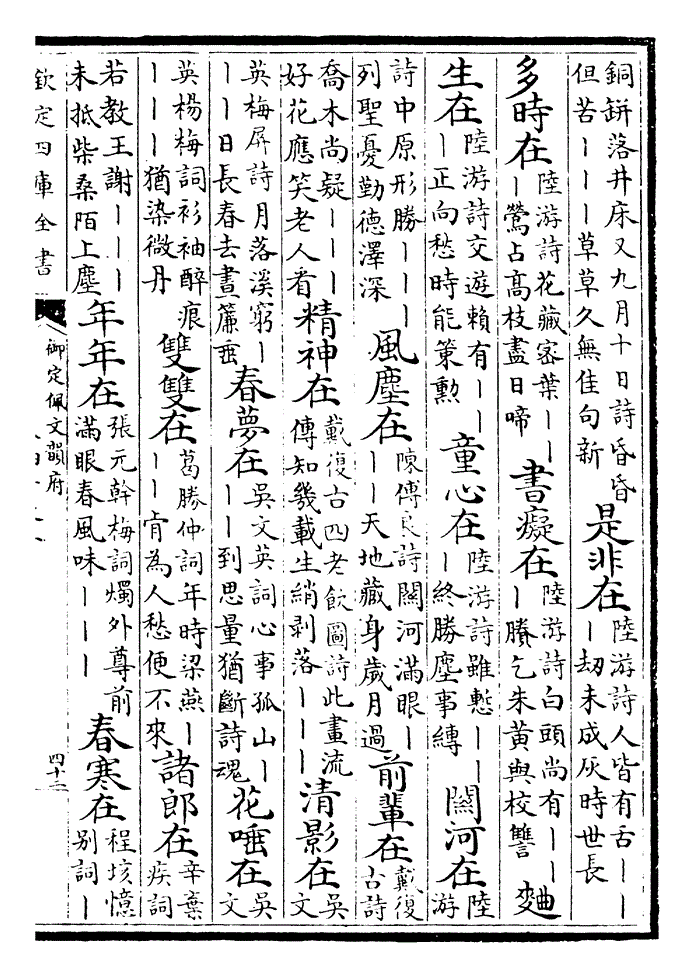 銅缾落井床又九月十日詩昏昏
但苦丨丨丨草草久無佳句新
是非在
陸游詩人皆有舌丨丨
丨劫未成灰時世長
多時在
陸游詩花藏宻葉丨丨
丨鶯占高枝盡日啼
書癡在
陸游詩白頭尚有丨丨
丨賸乞朱黃與校讐
麯
生在
陸游詩交遊賴有丨丨
丨正向愁時能策勲
童心在
陸游詩雖慙丨丨
丨終勝塵事縛
關河在
陸
游
詩中原形勝丨丨丨
列聖憂勤德澤深
風塵在
陳傅良詩關河滿眼丨
丨丨天地藏身歲月過
前輩在
戴復
古詩
喬木尚疑丨丨丨
好花應笑老人看
精神在
戴復古四老飲圖詩此畫流
傳知幾載生綃剥落丨丨丨
清影在
吳
文
英梅屏詩月落溪窮丨
丨丨日長春去畫簾垂
春夢在
吳文英詞心事孤山丨
丨丨到思量猶斷詩魂
花唾在
吳
文
英楊梅詞衫袖醉痕
丨丨丨猶染微丹
雙雙在
葛勝仲詞年時梁燕丨
丨丨肯為人愁便不來
諸郎在
辛棄
疾詞
若教王謝丨丨丨
未抵柴桑陌上塵
年年在
張元幹梅詞燭外尊前
滿眼春風味丨丨丨
春寒在
程垓憶
别詞丨
欽定四庫全書
御定佩文韻府
四十二